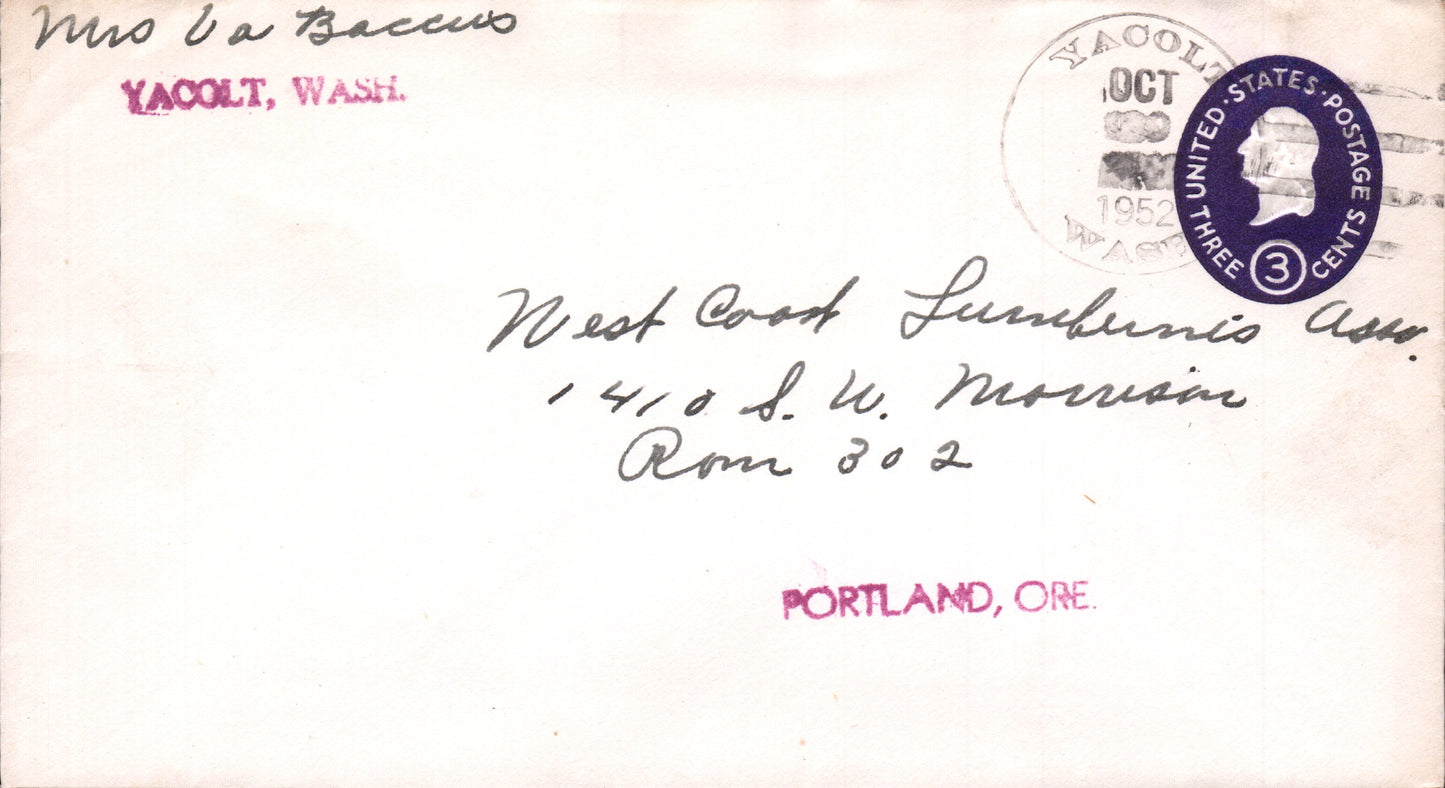 Mrs Va Baccus
YACOLT, WASH.
YACOLT
OCT
1952
WASH
UNITED · STATES · POSTAGE
THREE 3 CENTS
West Coast Lumbermis Asso.
1410 S. W. Morrison
Rom 302
PORTLAND, ORE.